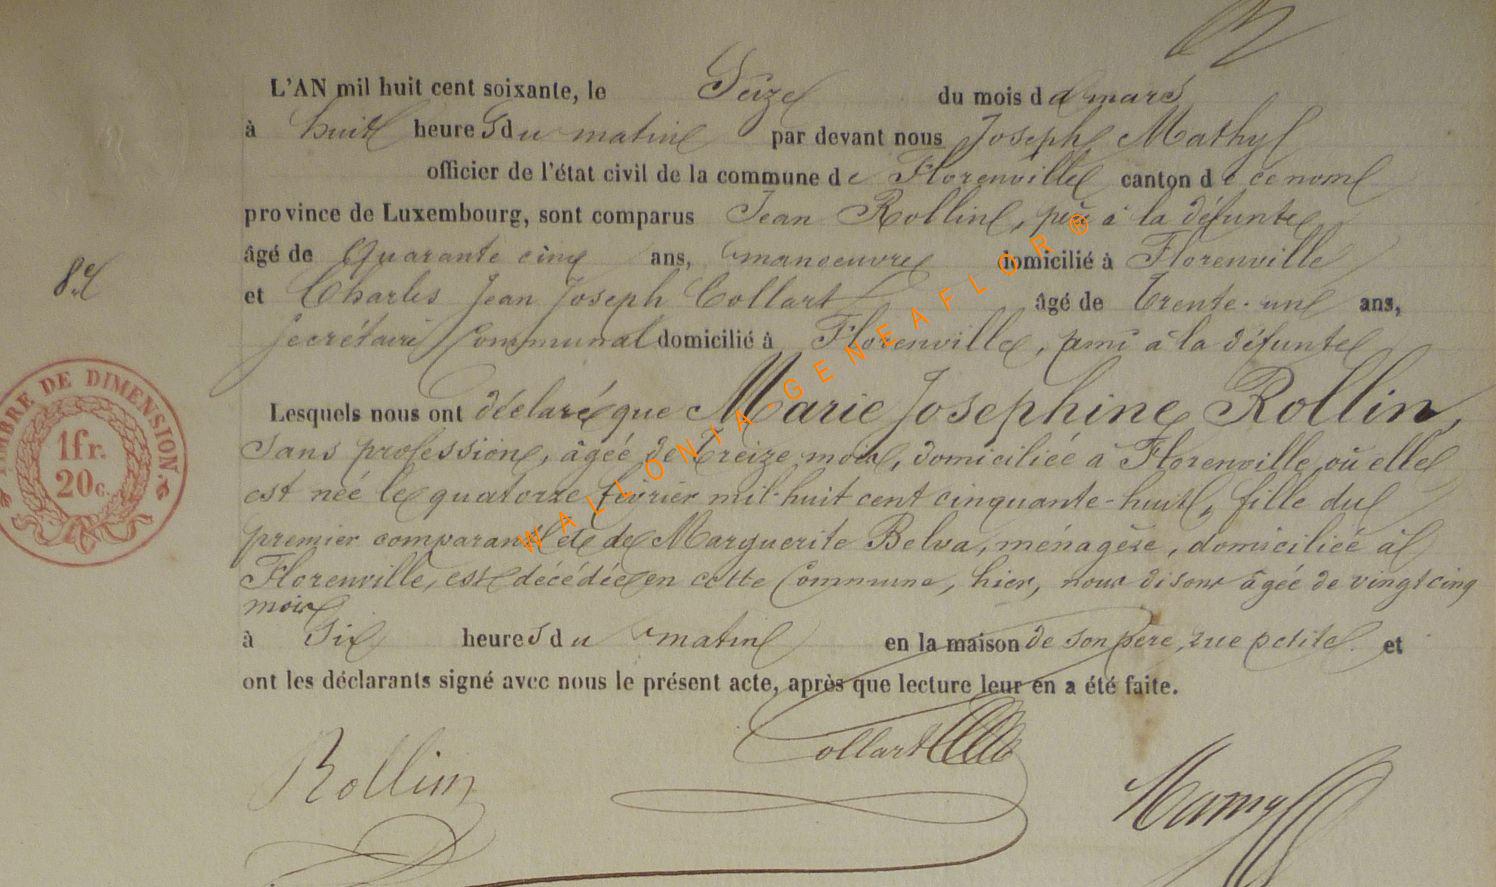 L'AN mil huit cent soixante, le Seize du mois de mars
à huit heures du matin par devant nous Joseph Mathy
officier de l'état civil de la commune de Florenville canton de ce nom
province de Luxembourg, sont comparus Jean Rollin, père à la défunte
âgé de quarante cinq ans, manoeuvre domicilié à Florenville
8e
et Charles Jean Joseph Collart âgé de trente-un ans,
secrétaire Communal domicilié à Florenville, ami à la défunte
TIMBRE DE DIMENSION
1fr.
20c.
Lesquels nous ont déclaré que Marie Josephine Rollin,
sans profession, âgée de treize mois, domiciliée à Florenville, où elle
est née le quatorze février mil-huit cent cinquante-huit, fille du
premier comparant et de Marguerite Belva, ménagère, domiciliée à
Florenville, est décédée en cette Commune, hier, nous disons âgée de vingt cinq
mois
à six heures du matin en la maison de son père, rue petite. et
ont les déclarants signé avec nous le présent acte, après que lecture leur en a été faite.
Rollin
Collart
WALLONIA-GENEAFLOR®